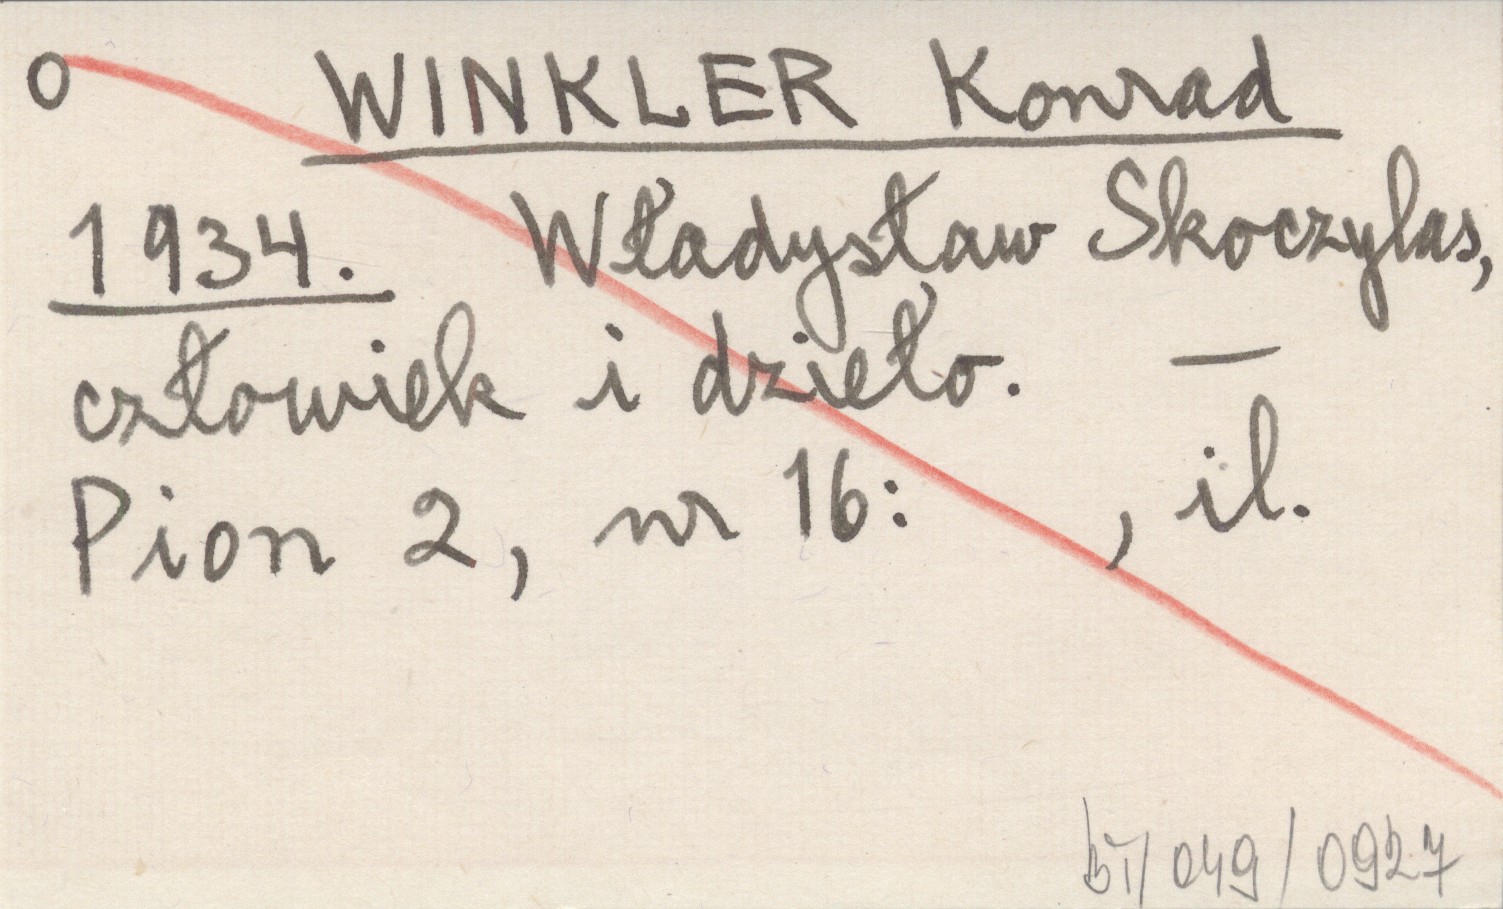 O WINKLER Konrad
1934. Władysław Skoczylas,
człowiek i dzieło. —
Pion 2, nr 16: , il.
bT/049/0927